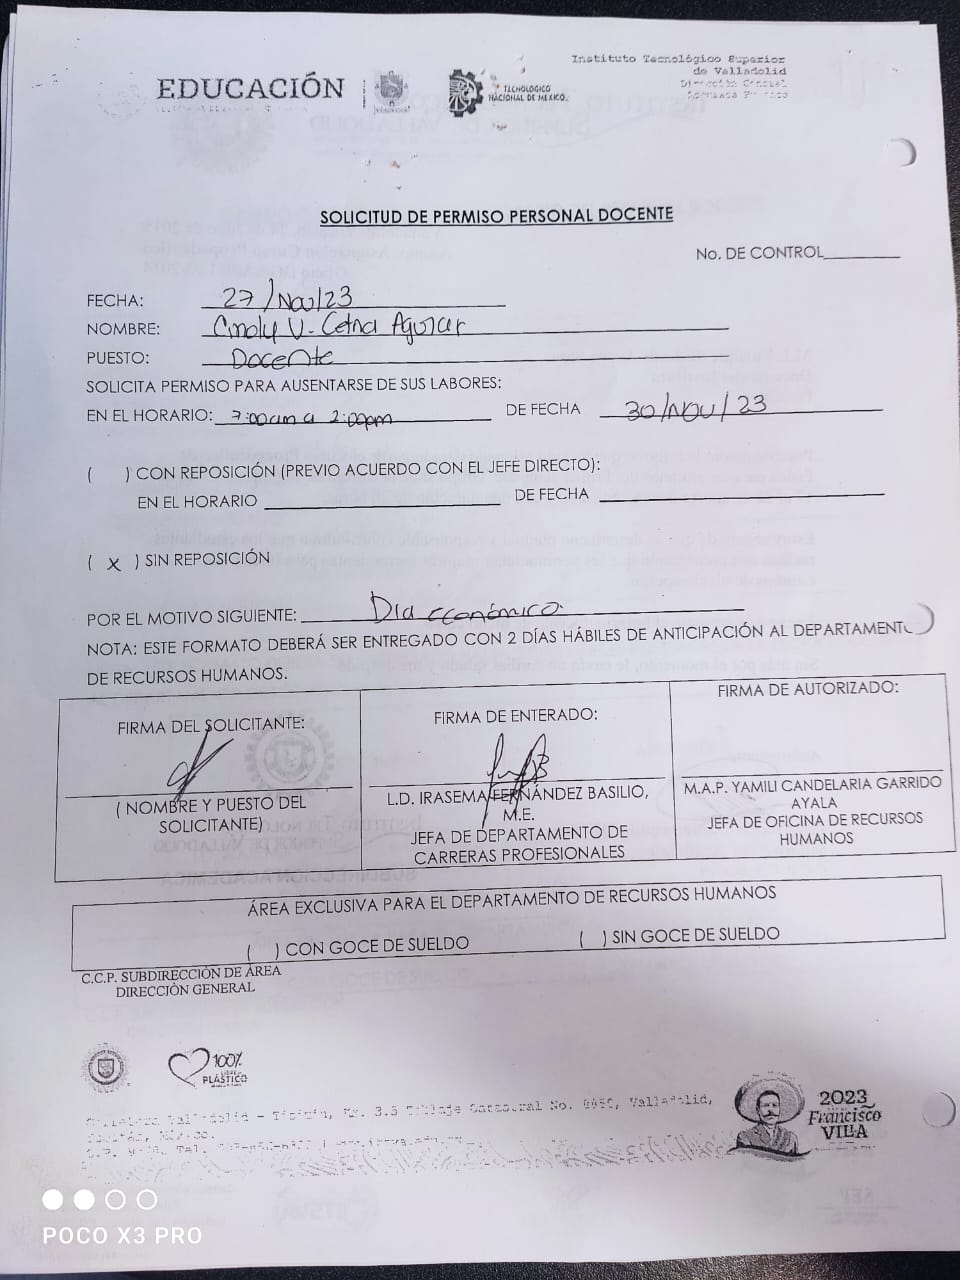 Instituto Tecnológico Superior
de Valladolid
Dirección General
EDUCACIÓN
TECNOLÓGICO
NACIONAL DE MÉXICO
SOLICITUD DE PERMISO PERSONAL DOCENTE
No. DE CONTROL
FECHA: 27/Nov/23
NOMBRE: Cindy V. Cetna Aguilar
PUESTO: Docente
SOLICITA PERMISO PARA AUSENTARSE DE SUS LABORES:
EN EL HORARIO: 7:00am a 2:00pm DE FECHA 30/Nov/23
( ) CON REPOSICIÓN (PREVIO ACUERDO CON EL JEFE DIRECTO):
EN EL HORARIO DE FECHA
( x ) SIN REPOSICIÓN
POR EL MOTIVO SIGUIENTE: Dia económico.
NOTA: ESTE FORMATO DEBERÁ SER ENTREGADO CON 2 DÍAS HÁBILES DE ANTICIPACIÓN AL DEPARTAMENTO
DE RECURSOS HUMANOS.
FIRMA DEL SOLICITANTE:
( NOMBRE Y PUESTO DEL
SOLICITANTE)
FIRMA DE ENTERADO:
L.D. IRASEMA FERNÁNDEZ BASILIO,
M.E.
JEFA DE DEPARTAMENTO DE
CARRERAS PROFESIONALES
FIRMA DE AUTORIZADO:
M.A.P. YAMILI CANDELARIA GARRIDO
AYALA
JEFA DE OFICINA DE RECURSOS
HUMANOS
ÁREA EXCLUSIVA PARA EL DEPARTAMENTO DE RECURSOS HUMANOS
( ) CON GOCE DE SUELDO ( ) SIN GOCE DE SUELDO
C.C.P. SUBDIRECCIÓN DE ÁREA
DIRECCIÓN GENERAL
100%
LIBRE DE
PLÁSTICO
Valladolid - Tizimín, Km. 3.5 Tablaje Catastral No. Valladolid,
2023
Francisco
VILLA
POCO X3 PRO